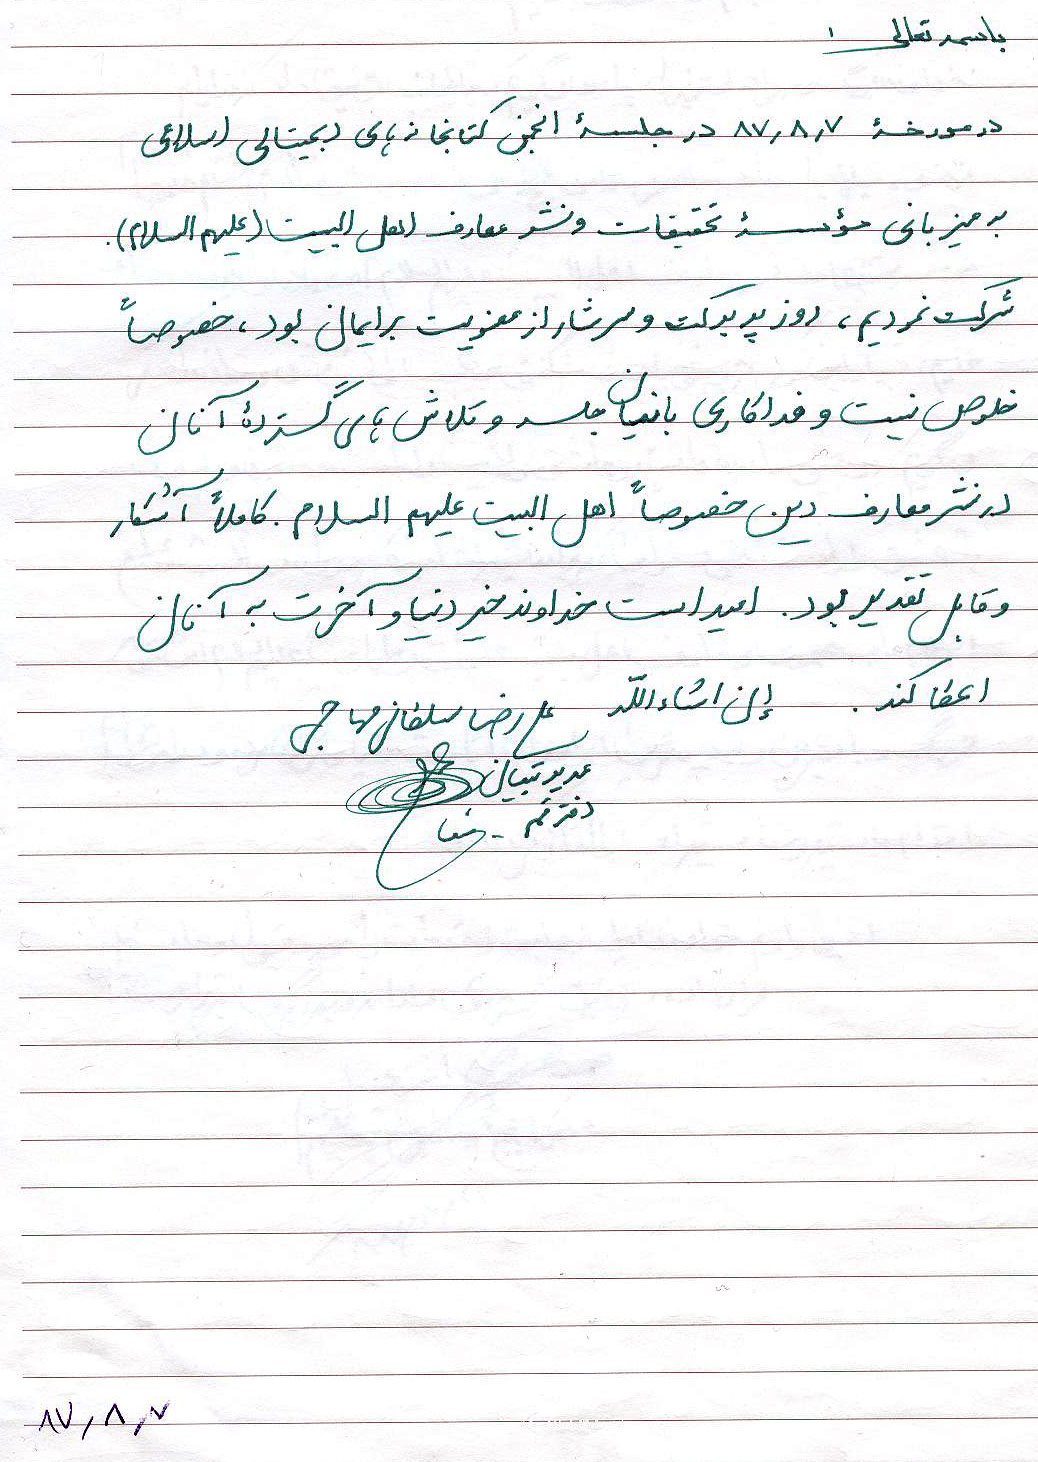 باسمه تعالی
در مورخهٔ ۸۷٫۸٫۷ در جلسهٔ انجمن کتابخانه‌های دیجیتالی اسلامی
به میزبانی مؤسسهٔ تحقیقات و نشر معارف اهل البیت (علیهم السلام).
شرکت نمودیم، روز پر برکت و سرشار از معنویت برایمان بود، خصوصاً
خلوص نیت و فداکاری بانیان جلسه و تلاش های گستردهٔ آنان
در نشر معارف دین خصوصاً اهل البیت علیهم السلام. کاملاً آشکار
و قابل تقدیر بود. امید است خداوند خیر دنیا و آخرت به آنان
اعطا کند. إن اشاءاللّه علیرضا سلطانی مهاجر
مدیر تبیان
دفتر قم
۸۷٫۸٫۷